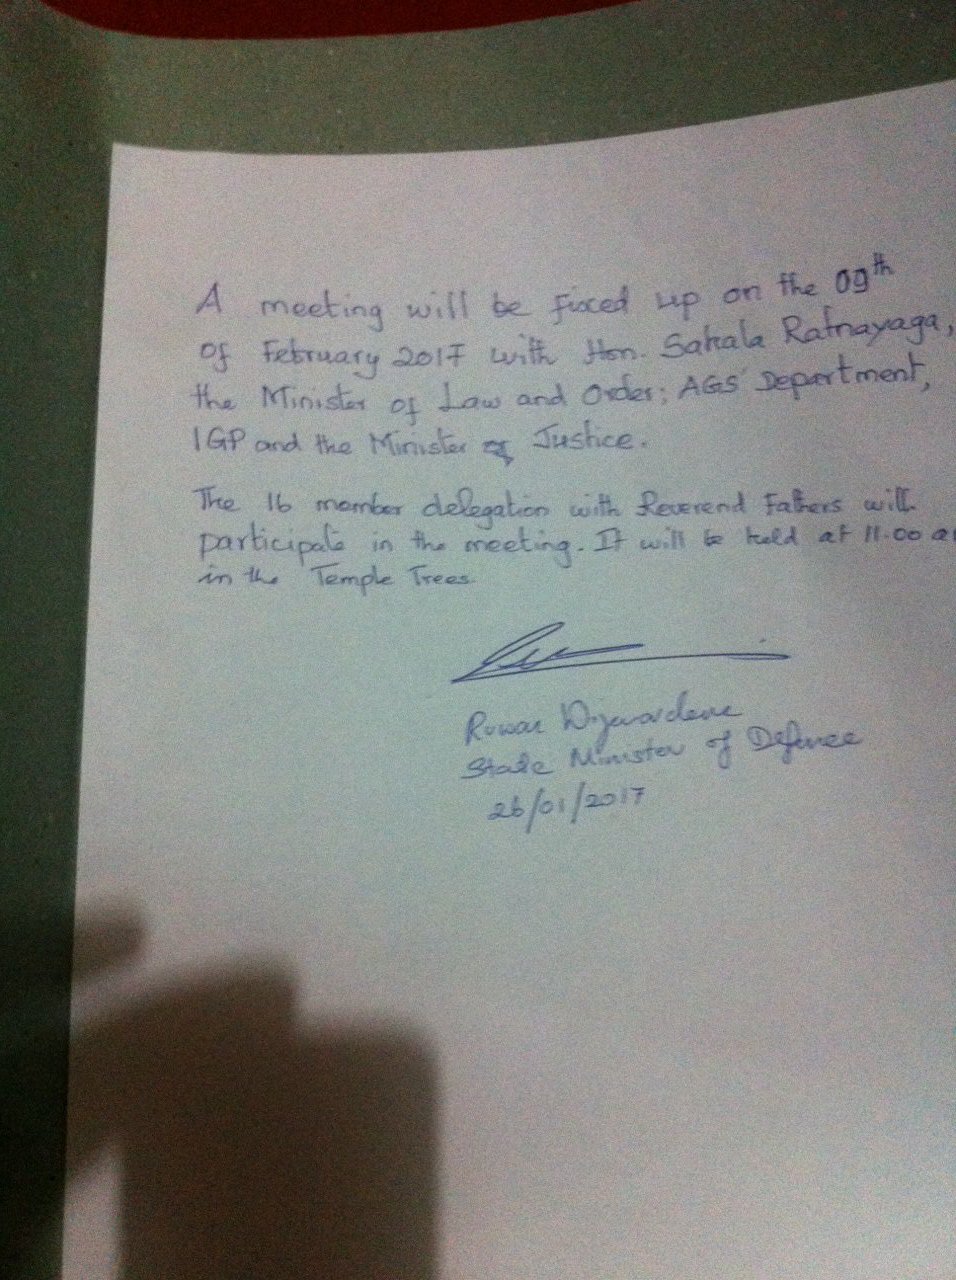 A meeting will be fixed up on the 09th
of February 2017 with Hon. Sahala Ratnayaga,
the Minister of Law and Order; AGS' Department,
IGP and the Minister of Justice.
The 16 member delegation with Reverend Fathers will
participate in the meeting. It will be held at 11.00 a
in the Temple Trees.
Ruwan Wijewardene
State Minister of Defence
26/01/2017